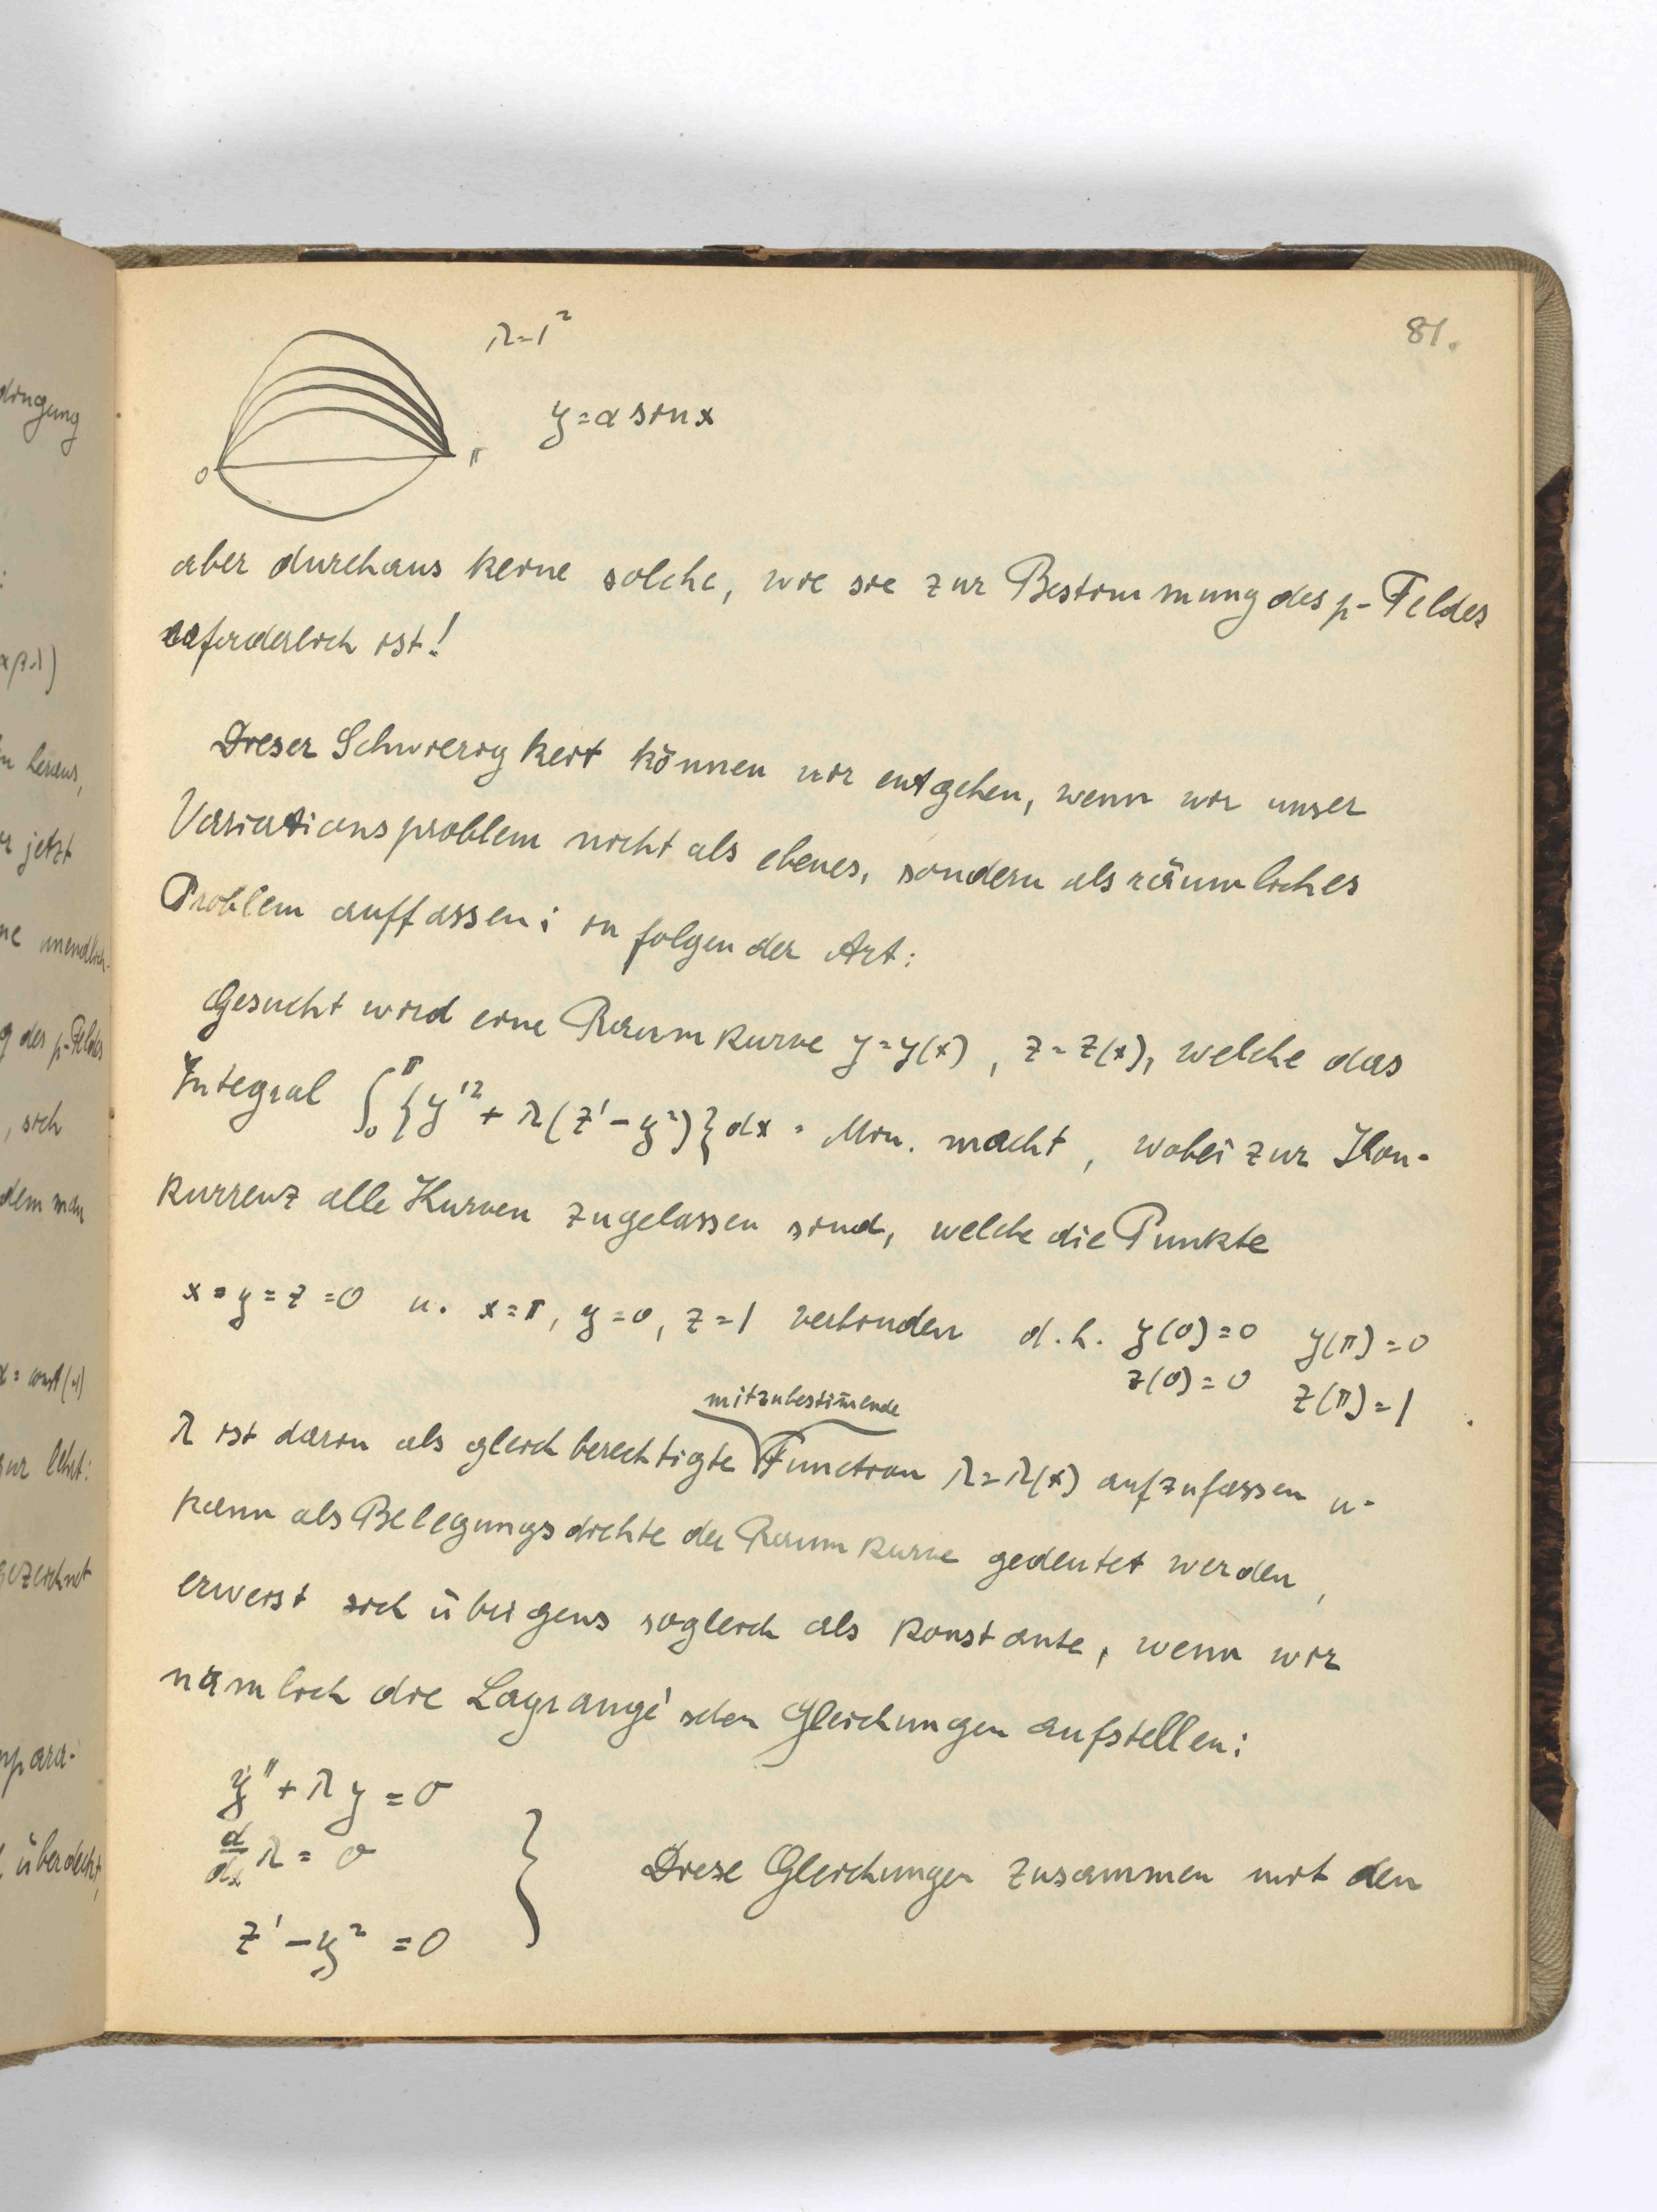 81.
λ=1²
y=α sin x
0 π
aber durchaus keine solche, wie sie zur Bestimmung des p-Feldes
erforderlich ist!
Dieser Schwierigkeit können wir entgehen, wenn wir unser
Variationsproblem nicht als ebenes, sondern als räumliches
Problem auffassen; in folgender Art:
Gesucht wird eine Raumkurve y=y(x), z=z(x), welche das
Integral ∫₀^π {y'²+λ(z'−y²)}dx = Min. macht, wobei zur Kon-
kurrenz alle Kurven zugelassen sind, welche die Punkte
x=y=z=0 u. x=π, y=0, z=1 verbinden d.h. y(0)=0 y(π)=0
z(0)=0 z(π)=1.
mitzubestim̄ende
λ ist darin als gleichberechtigte Function λ=λ(x) aufzufassen u.
kann als Belegungsdichte der Raumkurve gedeutet werden,
erweist sich übrigens sogleich als Konstante, wenn wir
nämlich die Lagrange'schen Gleichungen aufstellen:
y''+λy=0
d/dx λ=0
z'−y²=0
} Diese Gleichungen zusammen mit den
dingung
n heraus,
r jetzt
ne unendlich-
g des p-Feldes
, sich
dem man
zur lehrt:
gezeichnet
para-
überdeckt,